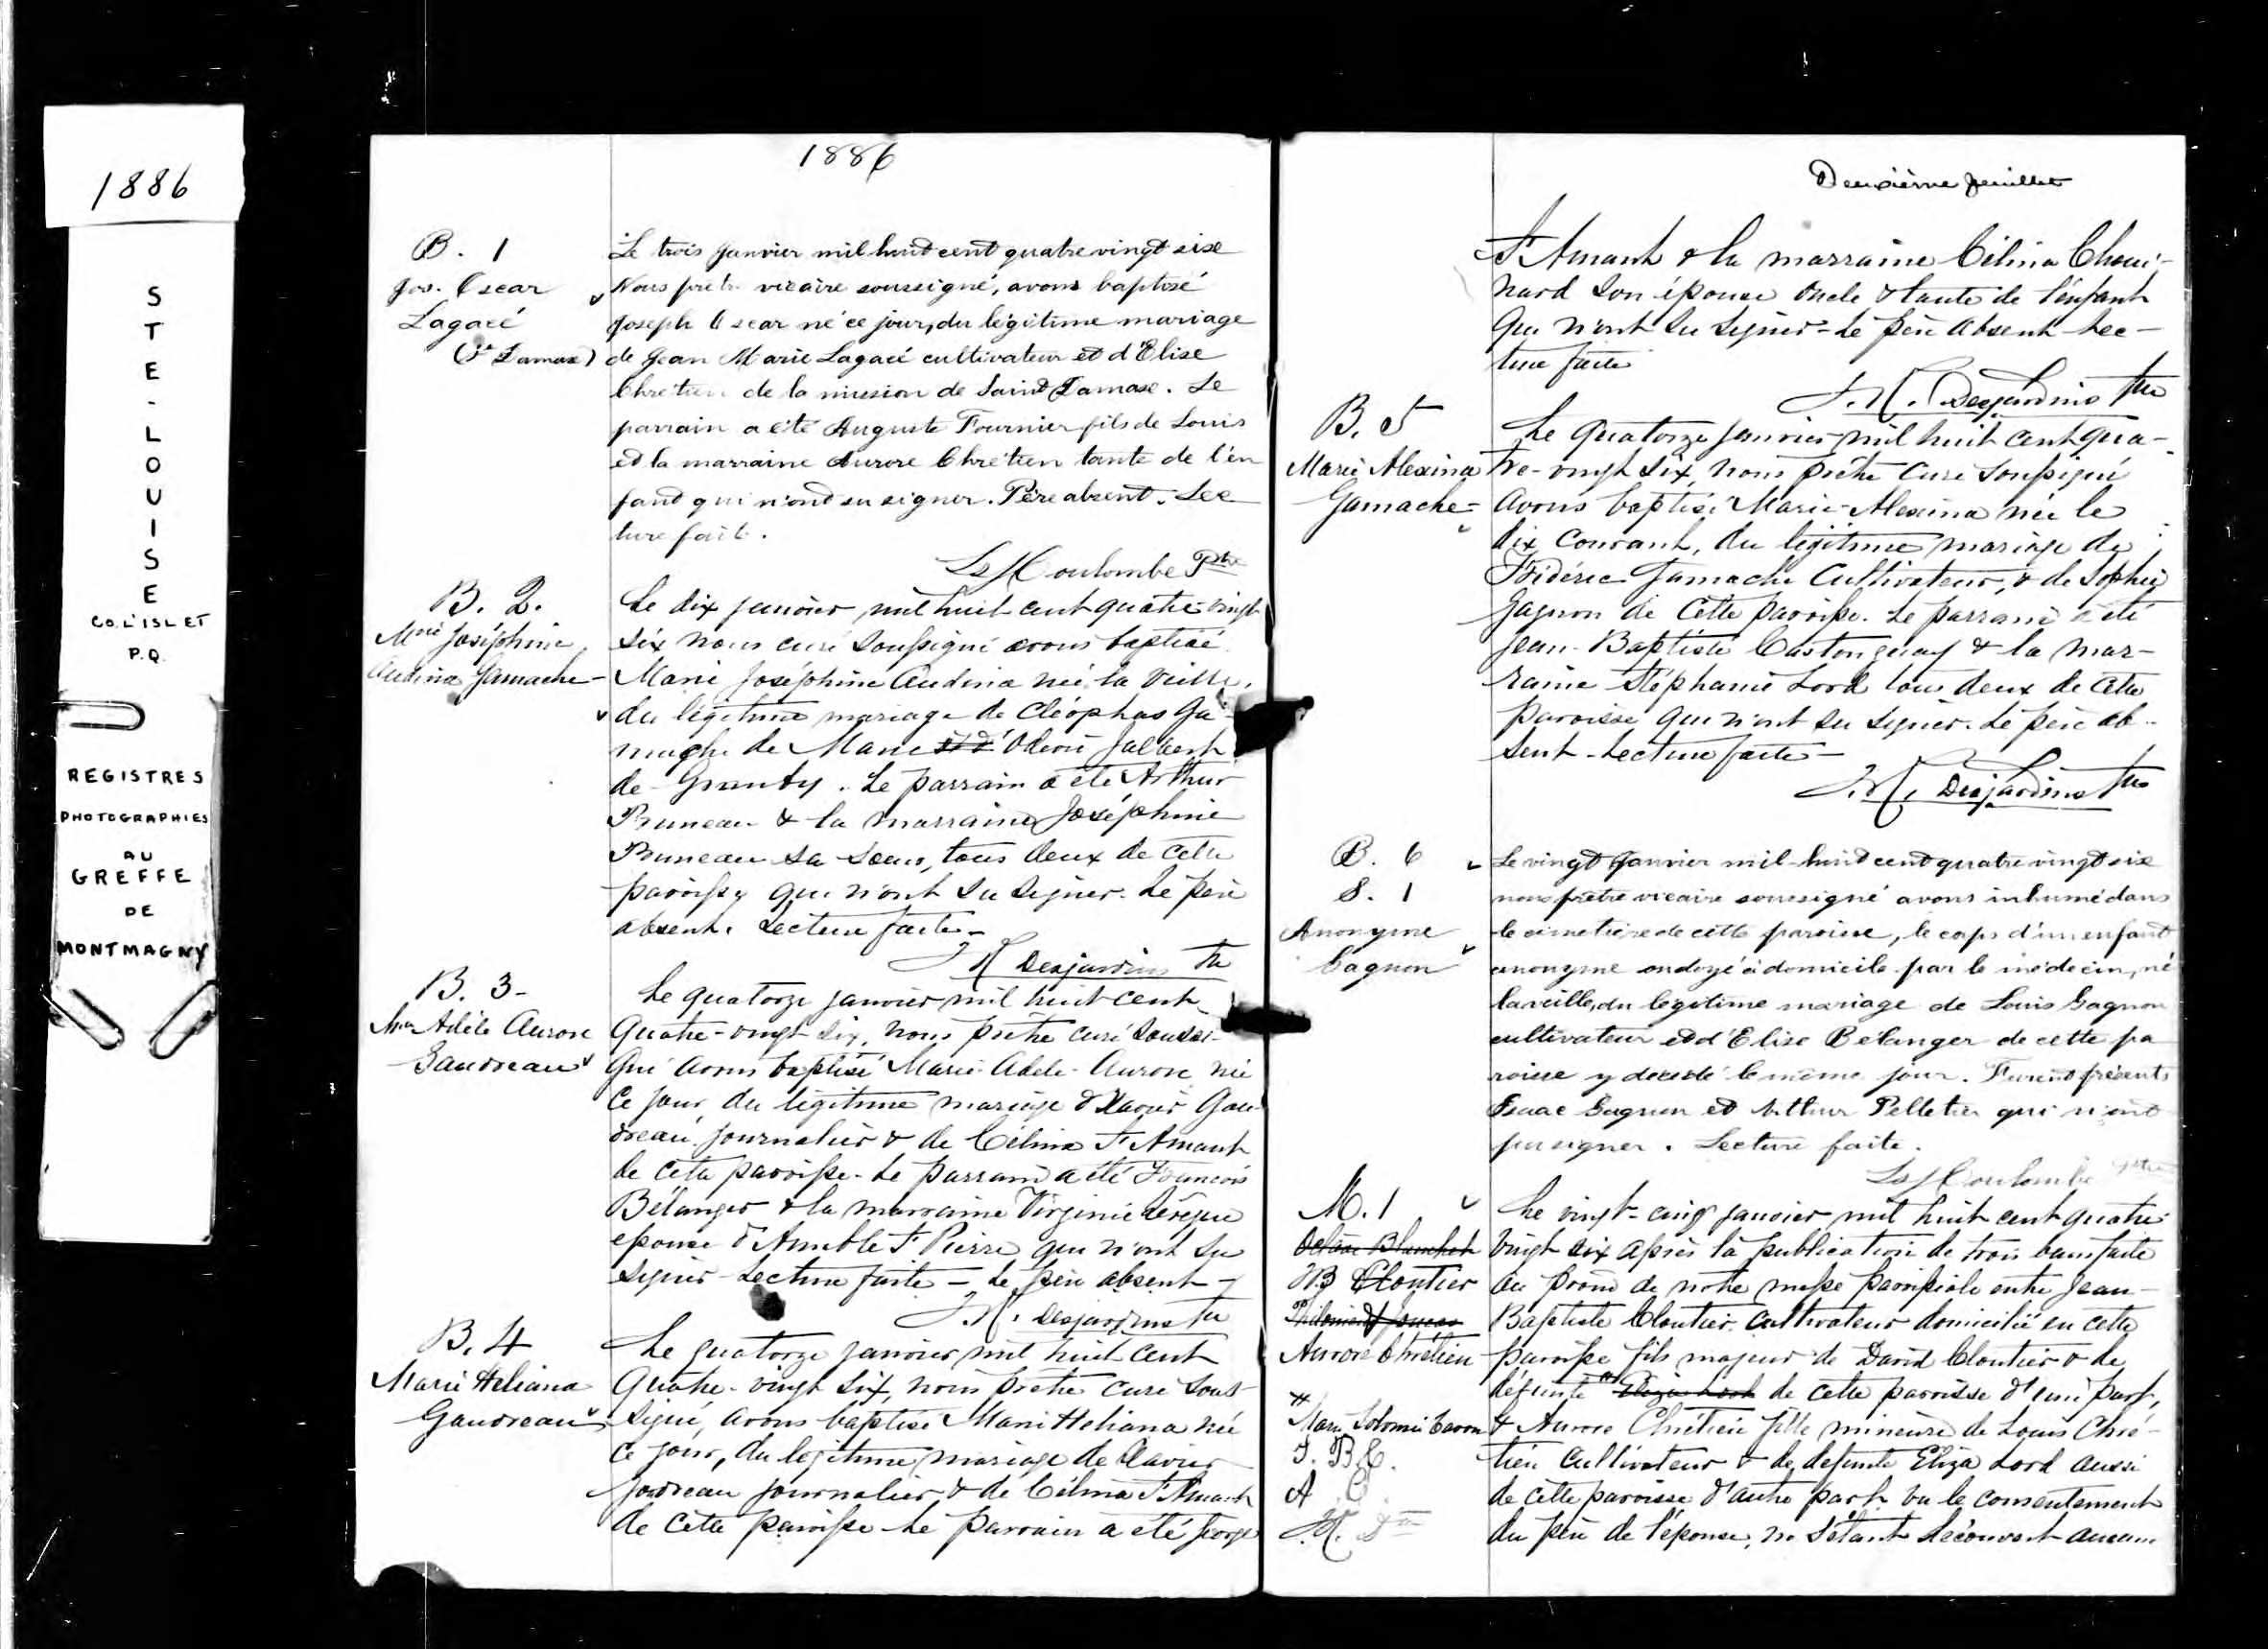 1886
STE-LOUISE
CO. L'ISLET
P.Q.
REGISTRES
PHOTOGRAPHIES
AU
GREFFE
DE
MONTMAGNY
1886
B. 1
Jos. Oscar
Lagacé
(St Damase)
Le trois Janvier mil huit cent quatre vingt six
Nous prêtre vicaire soussigné, avons baptisé
Joseph Oscar né ce jour, du légitime mariage
de Jean Marie Lagacé cultivateur et d'Elise
Chrétien de la mission de Saint Damase. Le
parrain a été Auguste Fournier fils de Louis
et la marraine Aurore Chrétien tante de l'en
fant qui n'ont su signer. Père absent. Lec
ture faite.
Ls H Coulombe Ptre
B. 2.
Mrie Joséphine
Audina Gamache -
Le dix janvier, mil huit cent quatre vingt
six nous curé soussigné avons baptisé
Marie Joséphine Audina née la veille,
du légitime mariage de Cléophas Ga-
mache de Marie et d' Jalbert
de Granby. Le parrain a été Arthur
Bruneau & la marraine Joséphine
Bruneau sa soeur, tous deux de cette
paroisse qui n'ont su signer. Le père
absent. Lecture faite -
J R Desjardins Ptre
B. 3 -
Mrie Adèle Aurore
Gaudreau
Le quatorze janvier mil huit cent
quatre-vingt six, nous prêtre curé soussi-
gné avons baptisé Marie-Adele-Aurore née
ce jour, du légitime mariage d'Xavier Gau-
dreau journalier & de Célina St Amant
de cette paroisse. Le parrain a été François
Bélanger & la marraine Virginie Lévêque
épouse d'Amable St Pierre qui n'ont su
signer - Lecture faite - Le père absent -
J. R. Desjardins Ptre
B. 4
Marie Heliana
Gaudreau
Le quatorze janvier mil huit cent
quatre-vingt six, nous prêtre curé sous-
signé, avons baptisé Marie Heliana née
ce jour, du légitime mariage de Xavier
Gaudreau journalier & de Célina St Amant
de cette paroisse Le parrain a été George
Deuxième feuillet
St Amant & la marraine Célina Choui-
nard son épouse oncle & tante de l'enfant
qui n'ont su signer - Le père absent Lec-
ture faite
J. R. Desjardins Ptre
B. 5
Marie Alexina
Gamache -
Le quatorze janvier mil huit cent qua-
tre-vingt six, nous prêtre curé soussigné
avons baptisé Marie-Alexina née le
dix courant, du légitime mariage de
Frédéric Gamache cultivateur, & de Sophie
Gagnon de cette paroisse. Le parrain a été
Jean-Baptiste Castonguay & la mar-
raine Stéphanie Lord tous deux de cette
paroisse qui n'ont su signer. Le père ab-
sent - Lecture faite -
J. R. Desjardins Ptre
B. 6
S. 1
Anonyme
Gagnon
Le vingt Janvier mil-huit cent quatre vingt six
nous prêtre vicaire soussigné avons inhumé dans
le cimetière de cette paroisse, le corps d'un enfant
anonyme ondoyé à domicile par le médecin, né
la veille, du légitime mariage de Louis Gagnon
cultivateur et d'Elise Bélanger de cette pa
roisse y décédé le même jour. Furent présents
Isaac Gagnon et Arthur Pelletier qui n'ont
pu signer. Lecture faite.
Ls H Coulombe Ptre
M. 1
Octave Blanchet
JB Cloutier
Aurore Chrétien
Le vingt-cinq janvier mil huit cent quatre-
vingt six après la publication de trois bans faite
au prône de notre messe paroissiale entre Jean-
Baptiste Cloutier cultivateur domicilié en cette
paroisse fils majeur de David Cloutier & de
défunte Eliza Lord de cette paroisse d'une part,
& Aurore Chrétien fille mineure de Louis Chré-
tien cultivateur & de défunte Eliza Lord aussi
de cette paroisse d'autre part vu le consentement
du père de l'épouse, ne s'étant découvert aucun
Marie Caron
J. B. C.
A C.
J. R. D